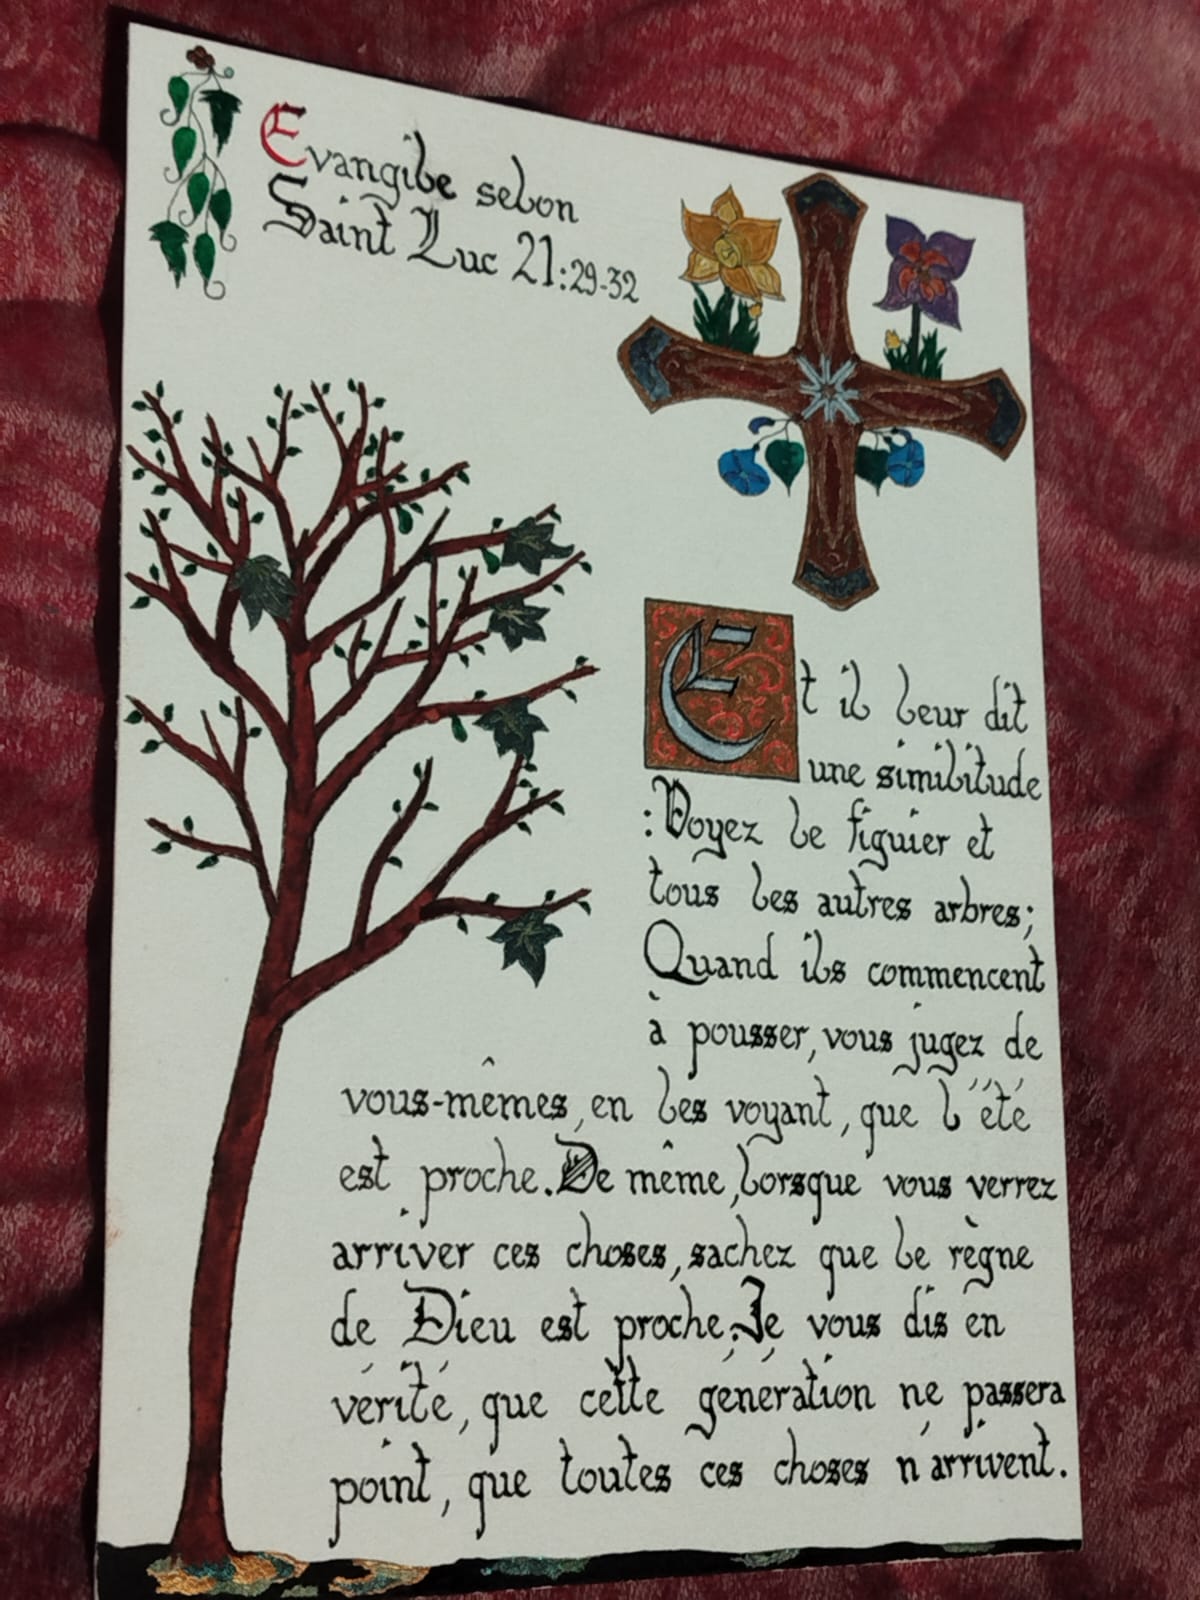 Evangile selon
Saint Luc 21:29-32
Et il leur dit
une similitude
:Voyez le figuier et
tous les autres arbres;
Quand ils commencent
à pousser, vous jugez de
vous-mêmes, en les voyant, que l'été
est proche. De même, lorsque vous verrez
arriver ces choses, sachez que le règne
de Dieu est proche. Je vous dis en
vérité, que cette génération ne passera
point, que toutes ces choses n'arrivent.